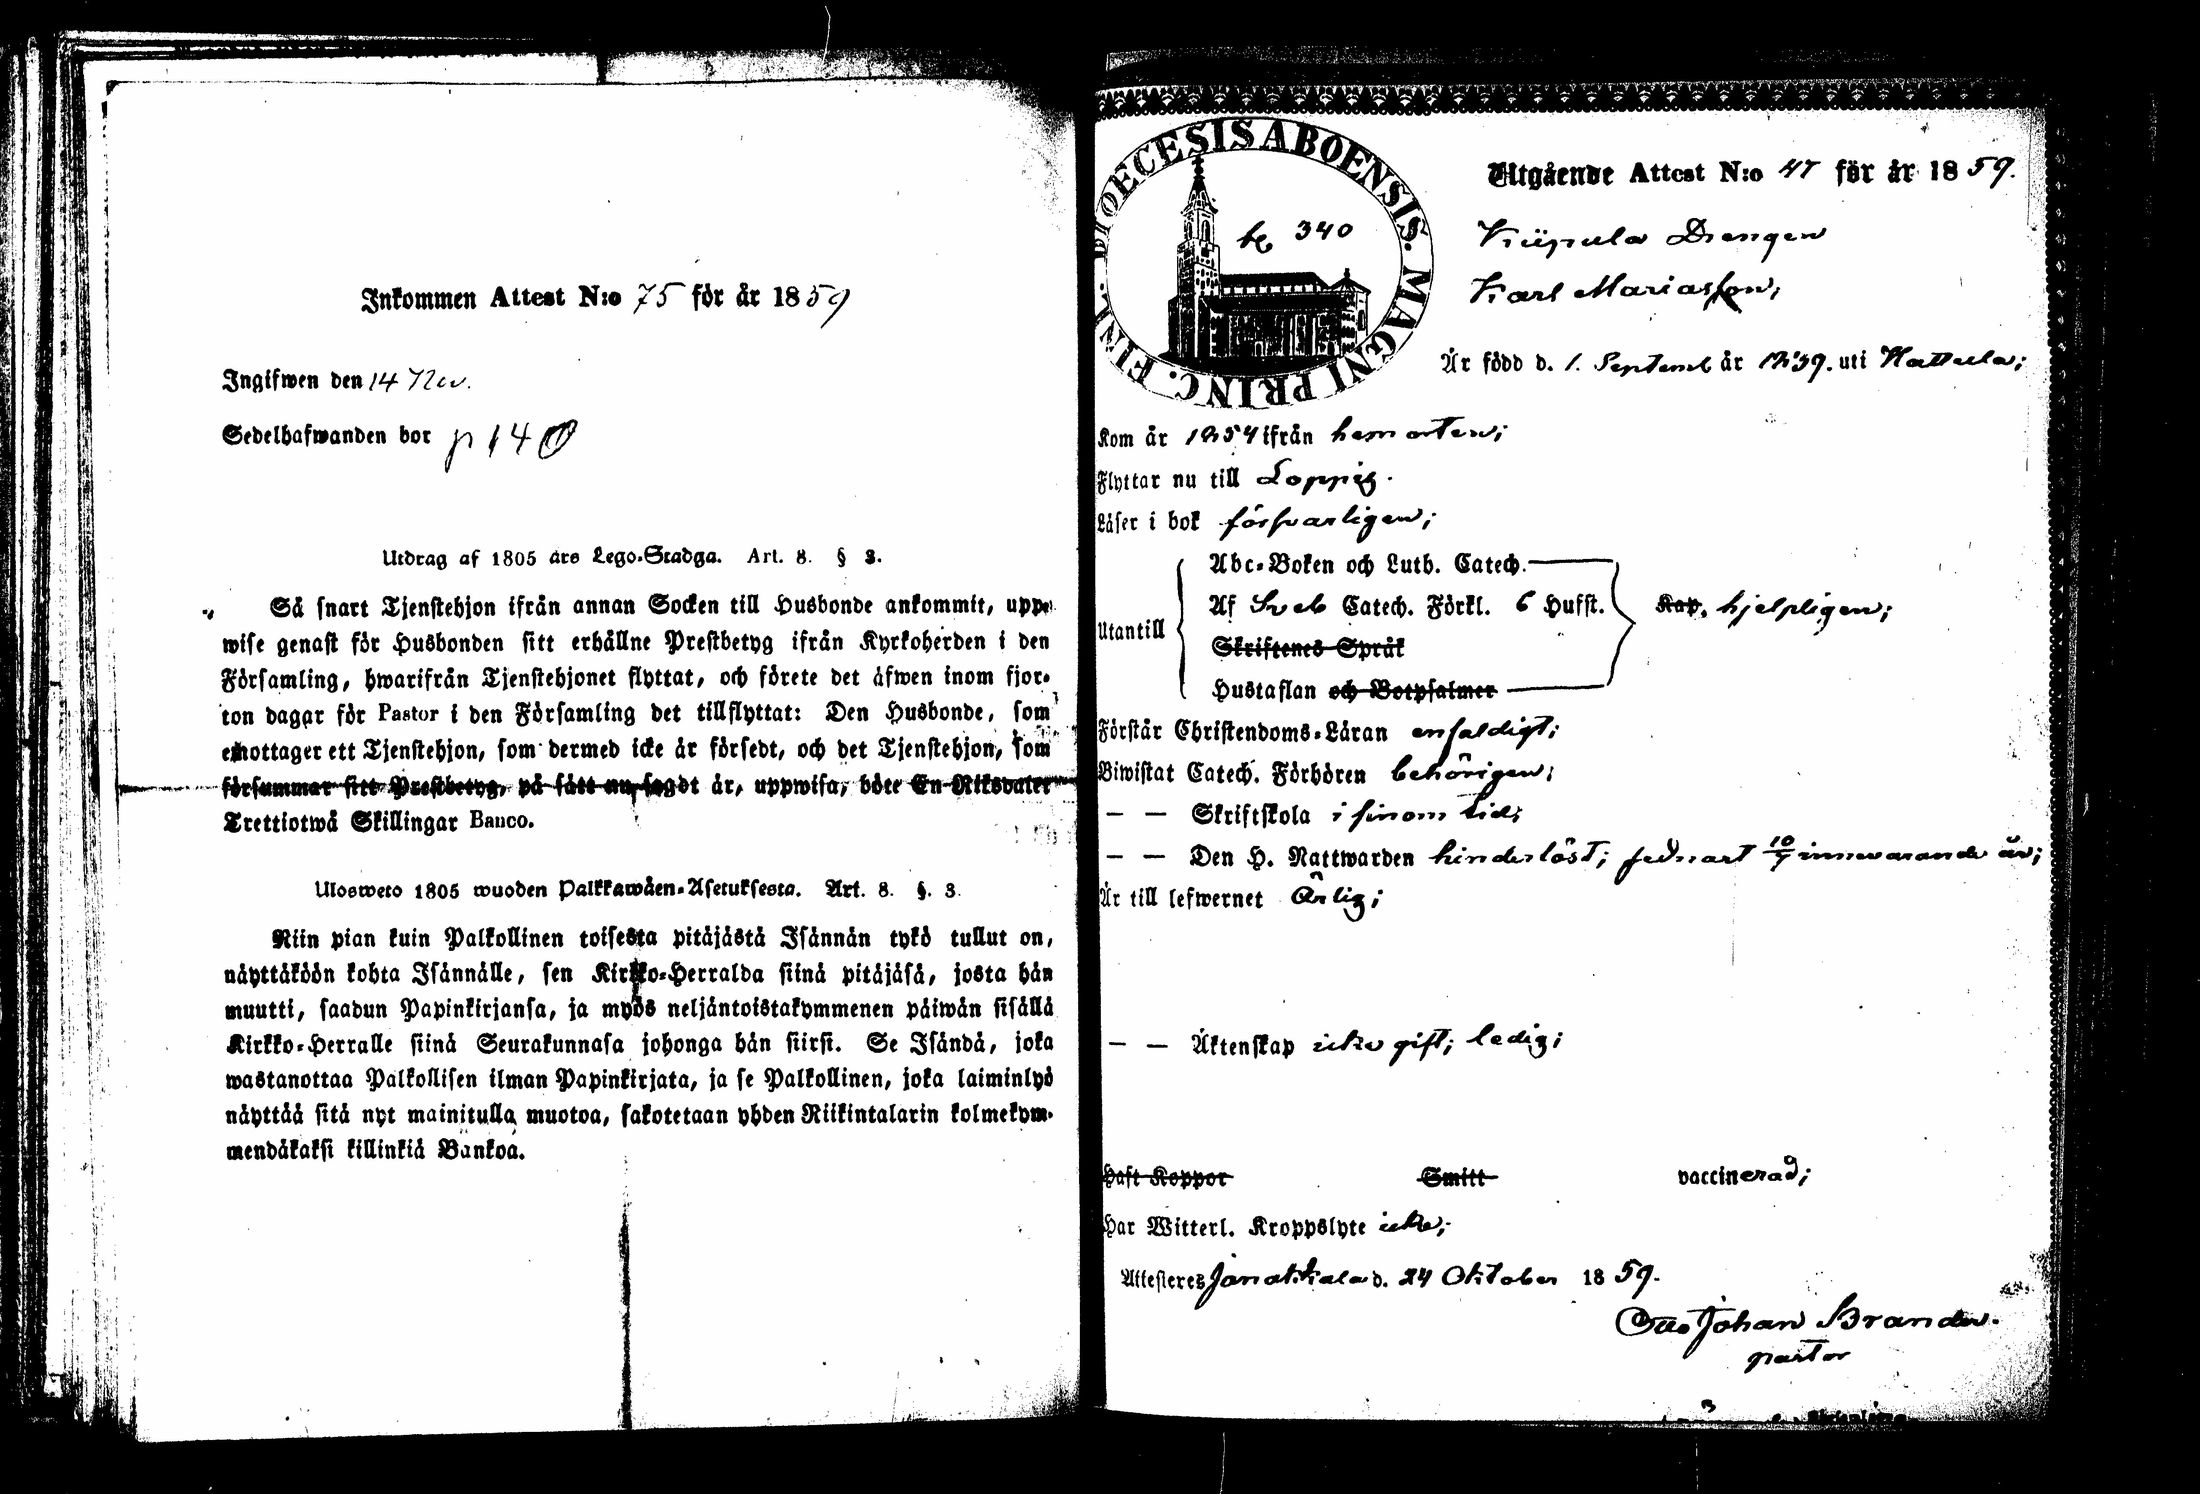 Inkommen Attest N:o 75 för år 1859
Ingifwen den 14 Nov.
Sedelhafwanden bor p 140
Utdrag af 1805 års Lego-Stadga. Art. 8. § 3.
Så snart Tjenstehjon ifrån annan Socken till Husbonde ankommit, upp-
wise genast för Husbonden sitt erhållne Prestbetyg ifrån Kyrkoherden i den
Församling, hwarifrån Tjenstehjonet flyttat, och förete det äfwen inom fjor-
ton dagar för Pastor i den Församling det tillflyttat: Den Husbonde, som
emottager ett Tjenstehjon, som dermed icke är försedt, och det Tjenstehjon, som
försummar sitt Prestbetyg, på sätt nu sagdt är, uppwisa, böte En Riksdaler
Trettiotwå Skillingar Banco.
Ulosweto 1805 wuoden Palkkawäen-Asetuksesta. Art. 8. §. 3.
Niin pian kuin Palkollinen toisesta pitäjästä Isännän tykö tullut on,
näyttäköön kohta Isännälle, sen Kirkko-Herralda siinä pitäjäsä, josta hän
muutti, saadun Papinkirjansa, ja myös neljäntoistakymmenen päiwän sisällä
Kirkko-Herralle siinä Seurakunnasa johonga hän siirsi. Se Isändä, joka
wastanottaa Palkollisen ilman Papinkirjata, ja se Palkollinen, joka laiminlyö
näyttää sitä nyt mainitulla muotoa, sakotetaan yhden Riikintalarin kolmekym-
mendäkaksi killinkiä Bankoa.
DIOECESIS ABOENSIS. MAGNI PRINC. FINL.
340
Utgående Attest N:o 47 för år 1859.
Drengen
Karl Mariasson;
Är född d. 1. Septemb år 1839. uti Hattula;
Kom år 1854 ifrån hemorten;
Flyttar nu till Loppis.
Läser i bok försvarligen;
Utantill
Abc-Boken och Luth. Catech.
Af Sveb Catech. Förkl. 6 Hufst. Kap. hjelpligen;
Skriftenes Språk
Hustaflan och Botpsalmer
Förstår Christendoms-Läran enfaldigt;
Biwistat Catech. Förhören behörigen;
— — Skriftskola i sinom tid;
— — Den H. Nattwarden hinderlöst; sednast 10/7 innevarande år;
Är till lefwernet Ärlig;
— — Äktenskap icke gift; ledig;
Haft Koppor Smitt vaccinerad;
Har Witterl. Kroppslyte icke;
Attesteres Janakkala d. 24 Oktober 1859.
Otto Johan Brander.
pastor